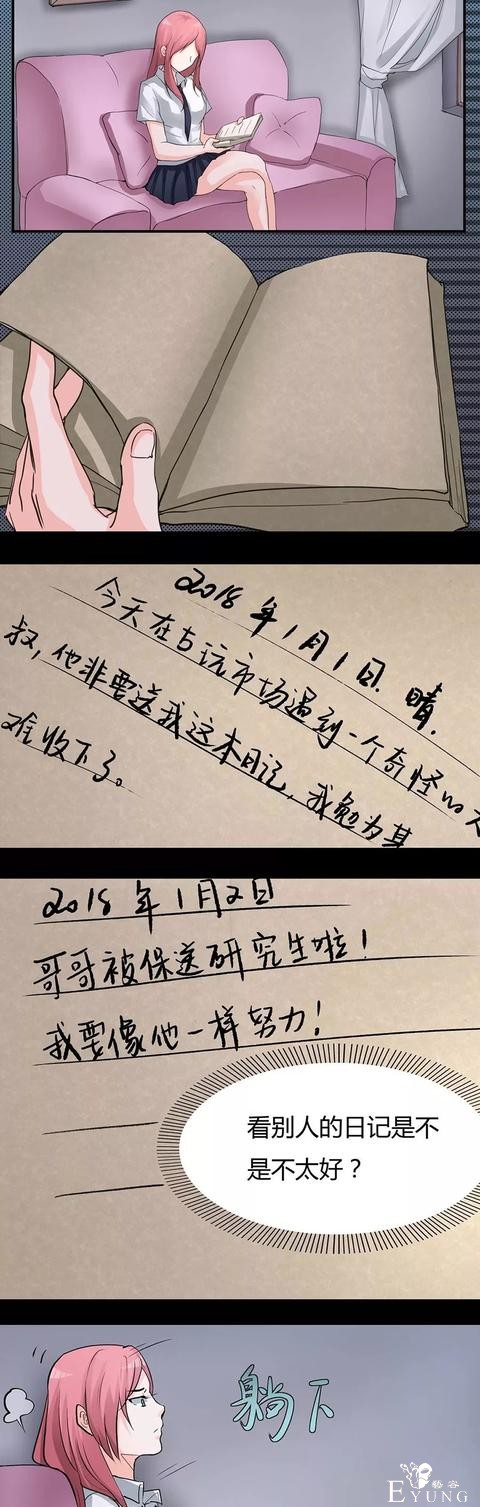 2018年1月1日.晴.
今天在古玩市场遇到一个奇怪的大
叔,他非要送我这本日记,我勉为其
难收下了。
2018年1月2日
哥哥被保送研究生啦!
我要像他一样努力!
看别人的日记是不
是不太好?
躺下
藝容
EYUNG